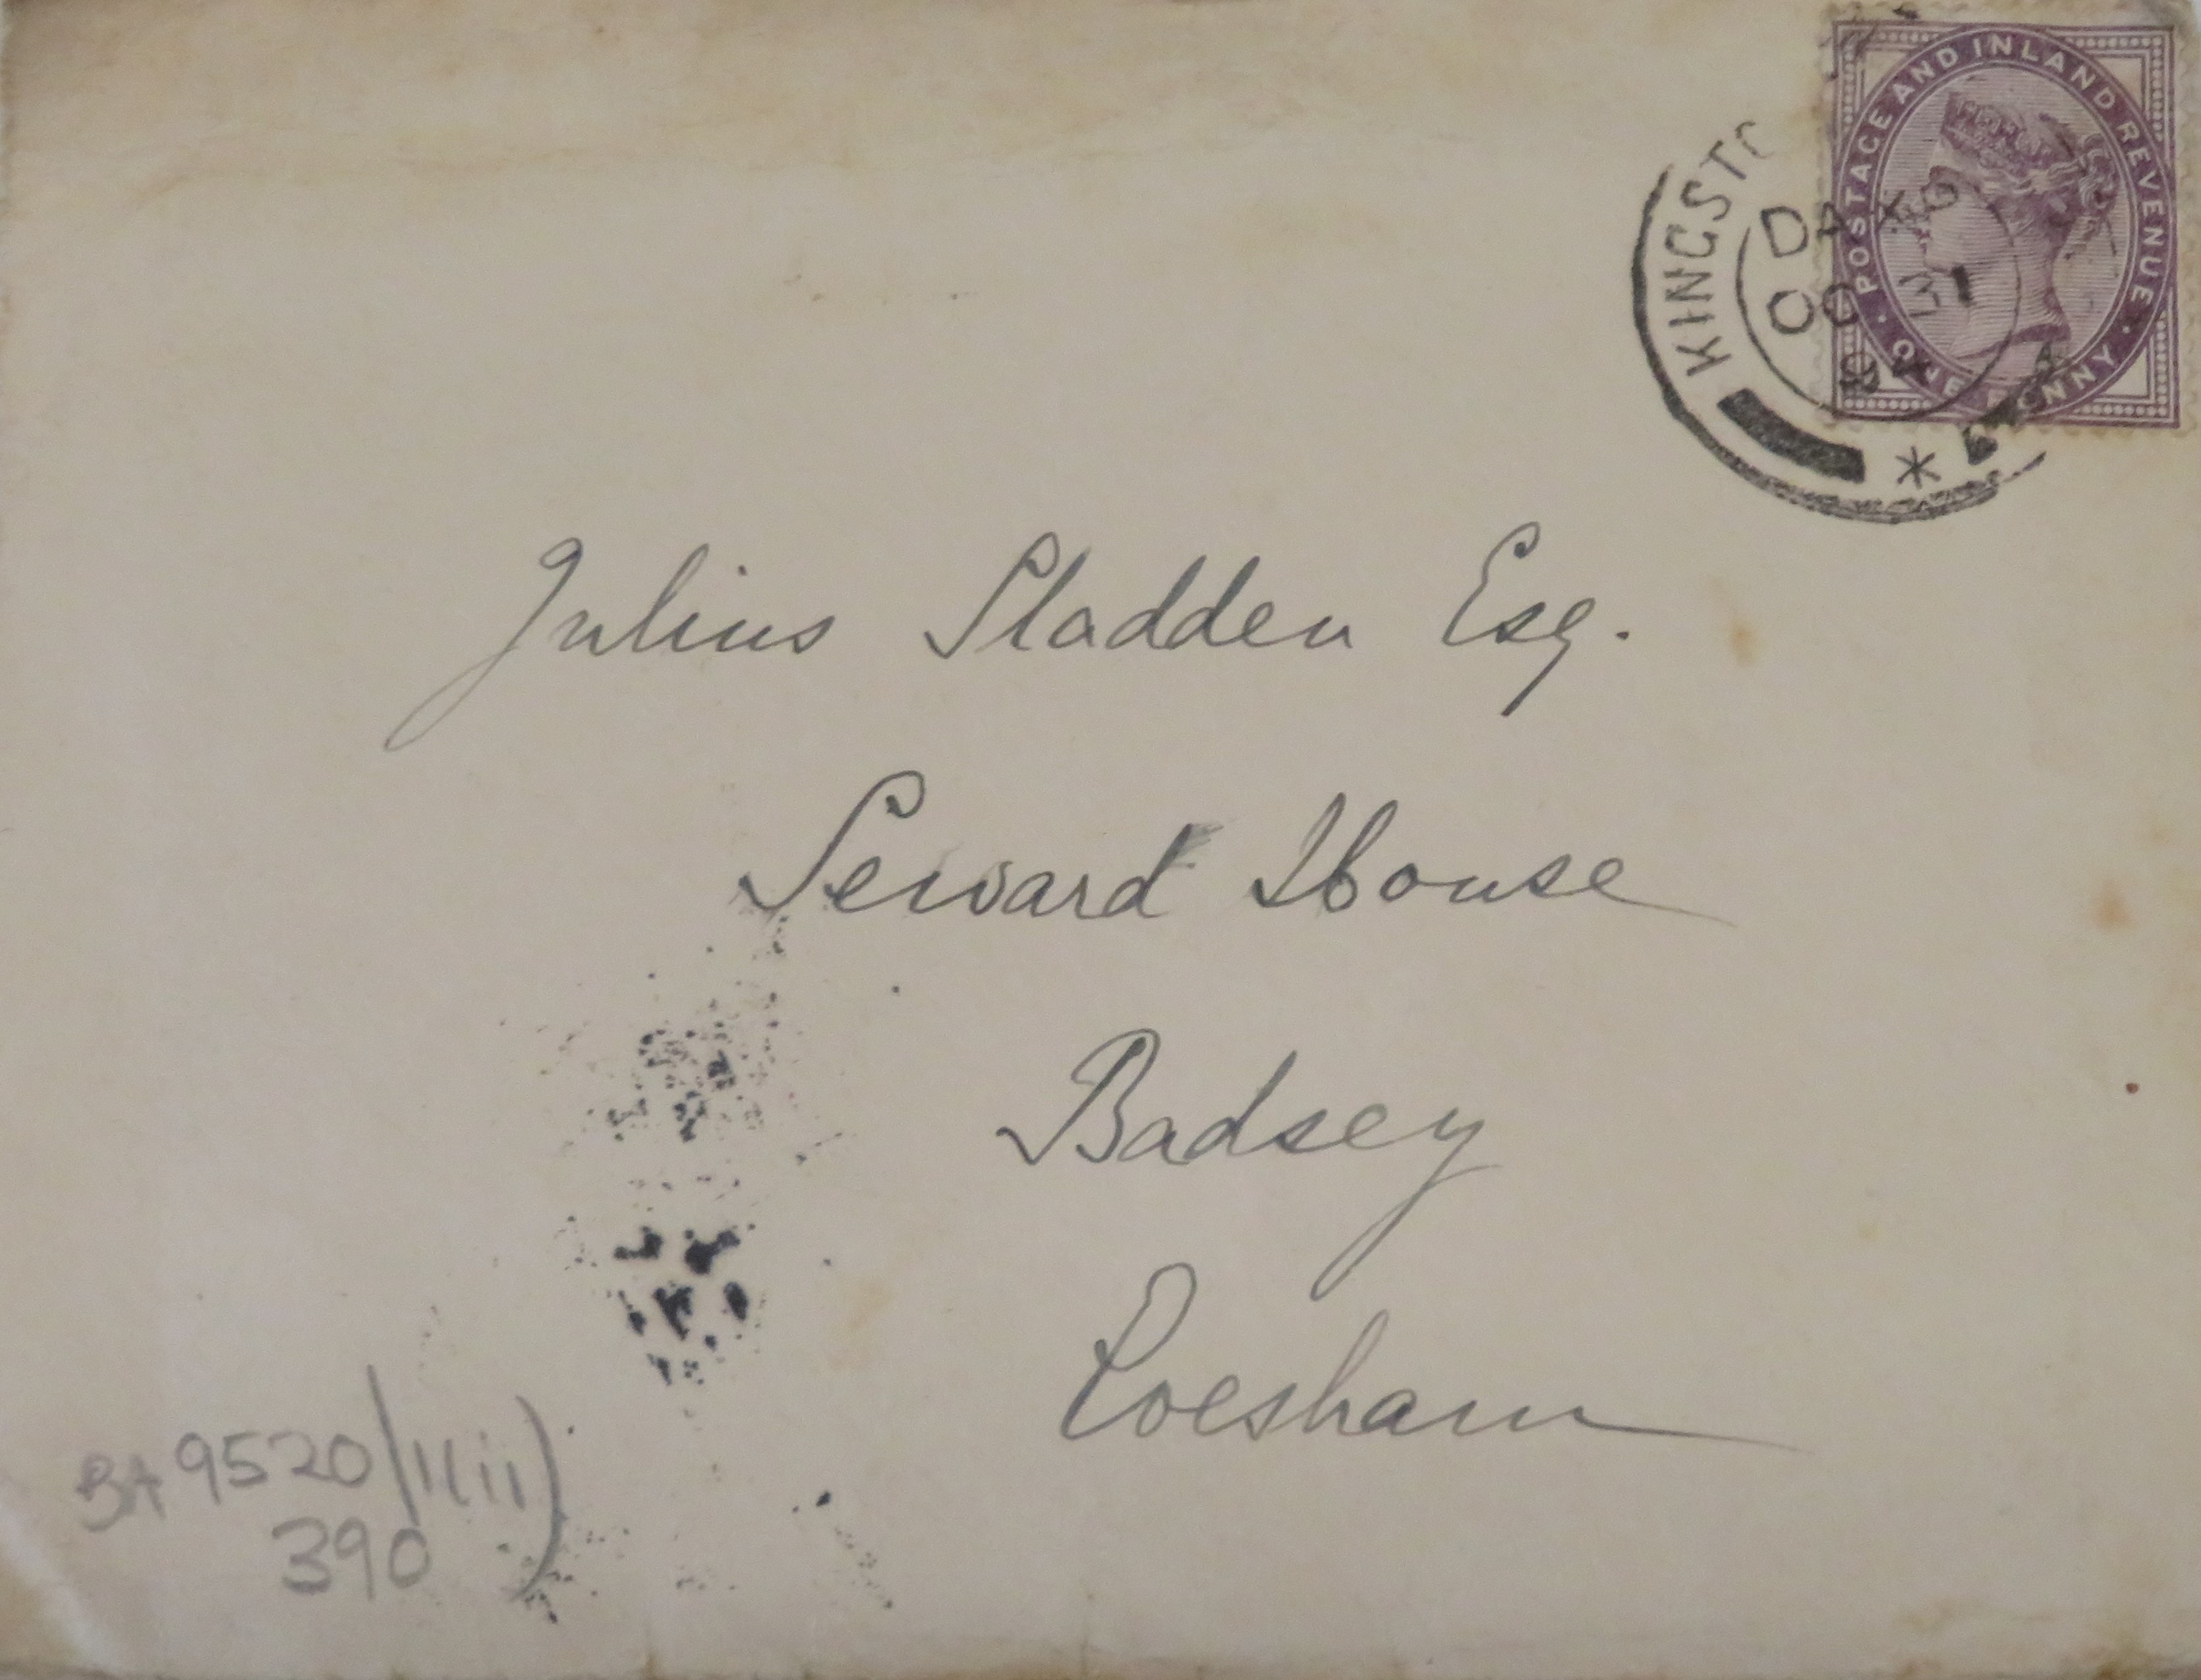 POSTAGE AND INLAND REVENUE
ONE PENNY
KINGSTO
OC 31
94
Julius Sladden Esq.
Seward House
Badsey
Evesham
BA 9520/1(ii)
390